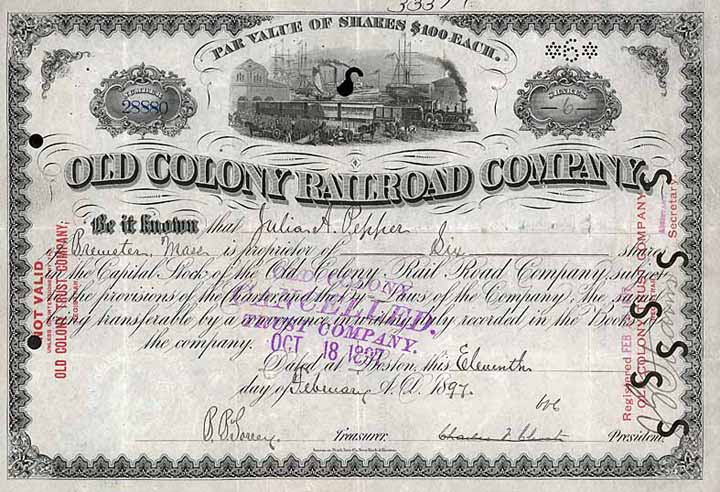 PAR VALUE OF SHARES $100 EACH.
NUMBER
28880
SHARES
6
OLD COLONY RAILROAD COMPANY
Be it known that Julia A. Pepper
Brewster, Mass is proprietor of Six shares
in the Capital Stock of the Old Colony Rail Road Company, subject
to the provisions of the Laws of the Company. The same
being transferable by a conveyance recorded in the Books of
the company.
Dated at Boston, this Eleventh
day of February A.D. 1897.
Treasurer.
President.
NOT VALID
UNLESS
OLD COLONY TRUST COMPANY,
REGISTRAR
OLD COLONY
CANCELLED.
TRUST COMPANY.
OCT 18 1897
Registered FEB
OLD COLONY TRUST COMPANY
Secretary.